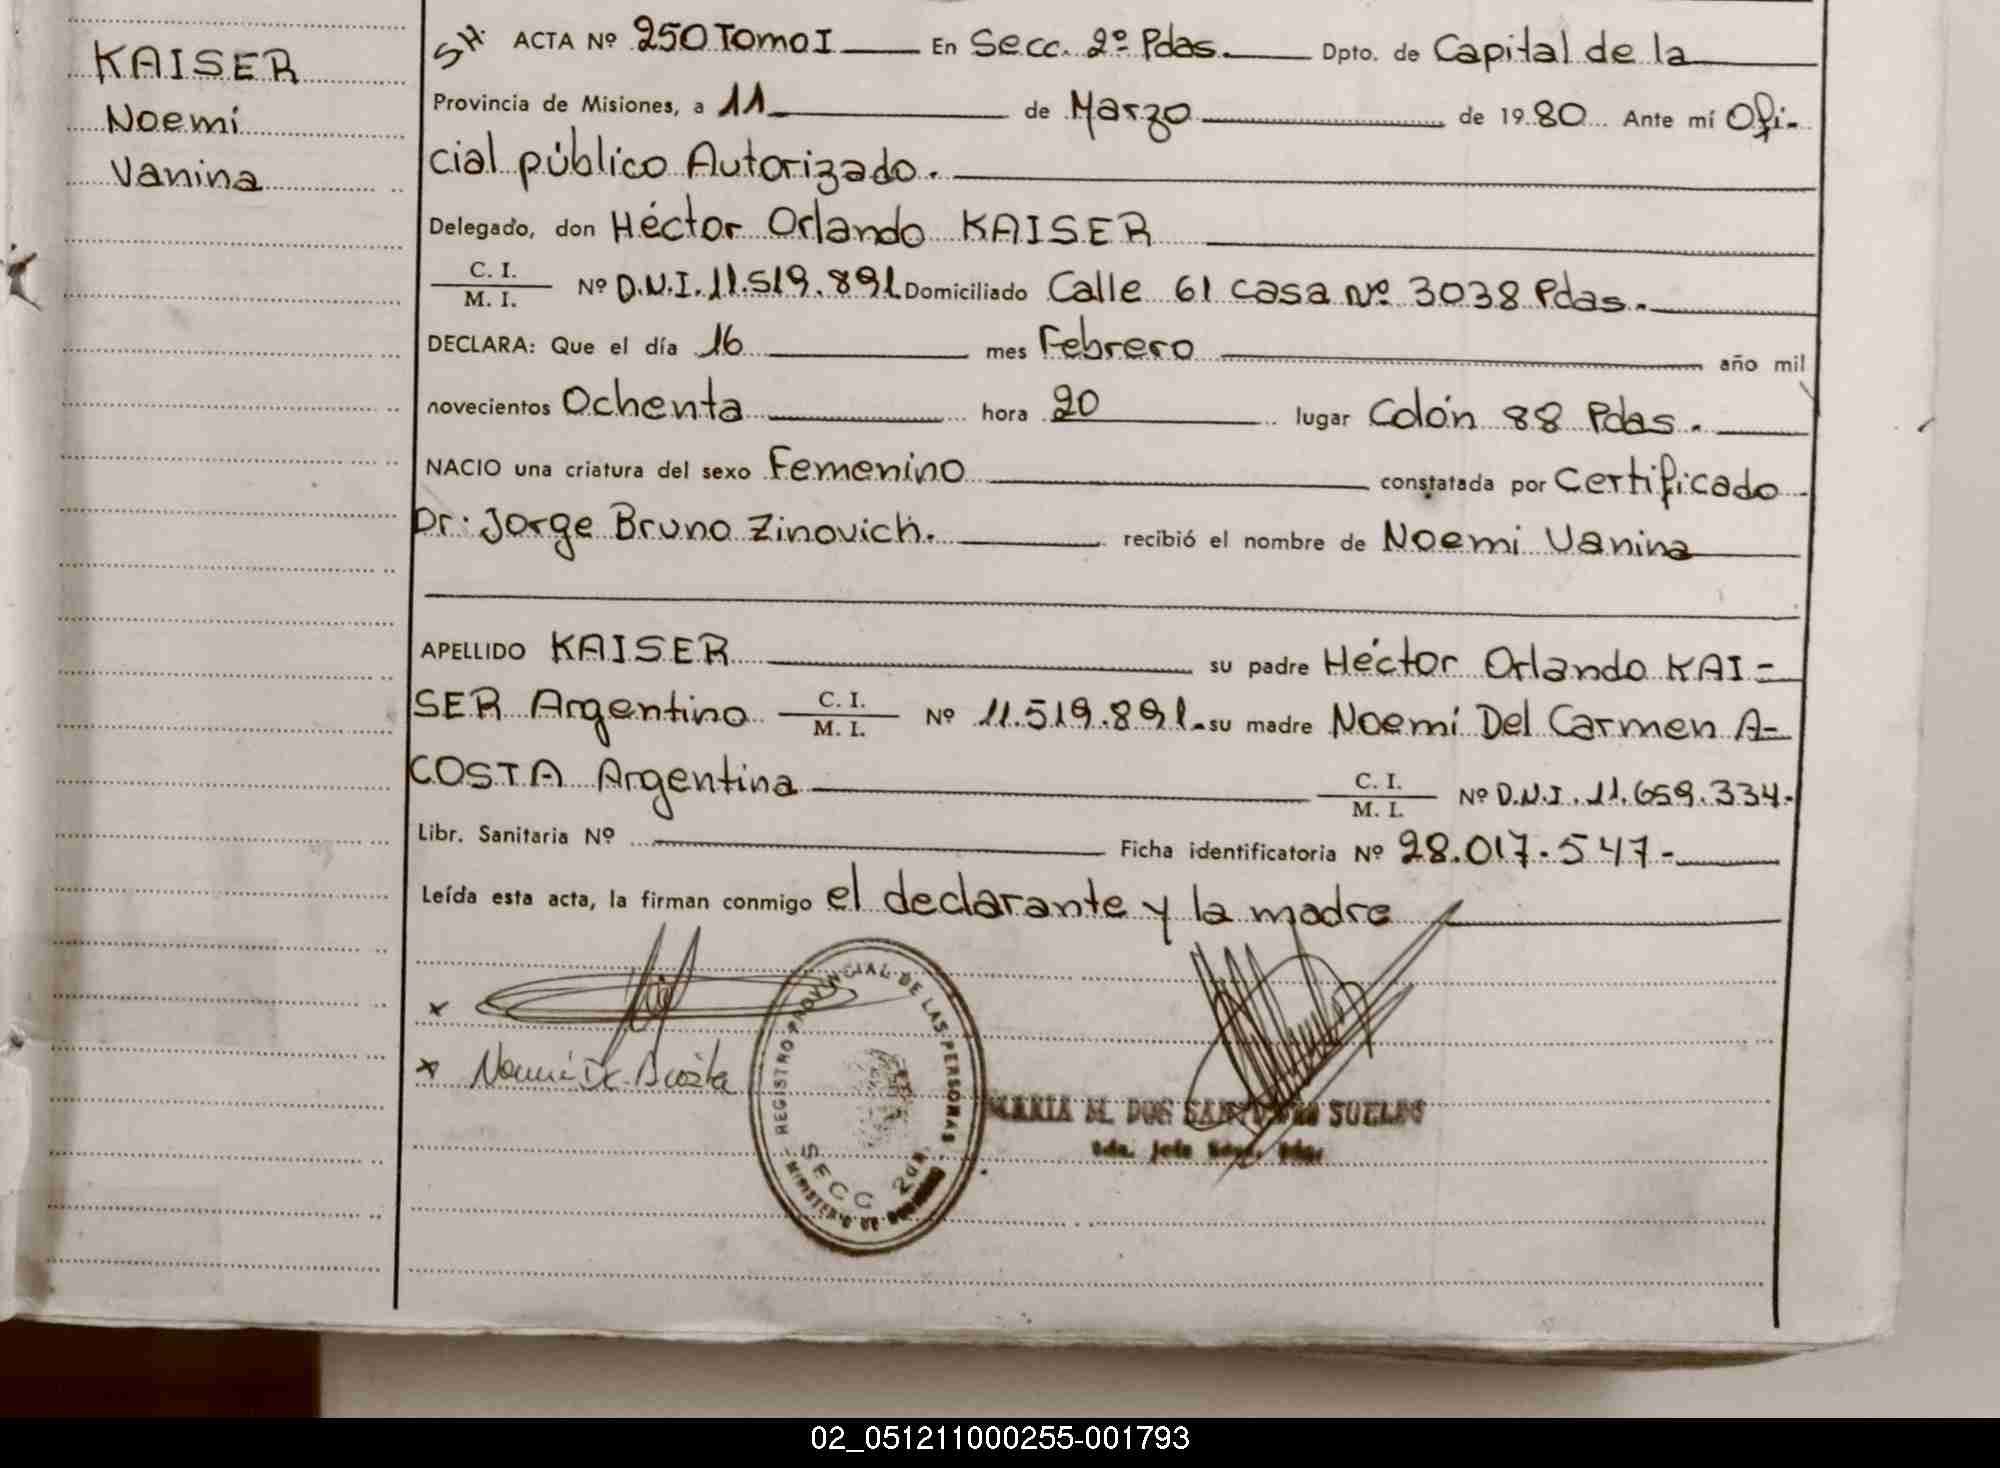 KAISER
Noemí
Vanina
SH. ACTA Nº 250 Tomo I En Secc. 2º Pdas. Dpto. de Capital de la
Provincia de Misiones, a 11 de Marzo de 1980 Ante mí Ofi-
cial público Autorizado.
Delegado, don Héctor Orlando KAISER
C. I.
M. I. Nº D.N.I. 11.519.891 Domiciliado Calle 61 casa Nº 3038 Pdas.
DECLARA: Que el día 16 mes Febrero año mil
novecientos Ochenta hora 20 lugar Colón 88 Pdas.
NACIO una criatura del sexo Femenino constatada por Certificado
Dr: Jorge Bruno Zinovich. recibió el nombre de Noemi Vanina
APELLIDO KAISER su padre Héctor Orlando KAI=
SER Argentino C. I. M. I. Nº 11.519.891. su madre Noemí Del Carmen A=
COSTA Argentina C. I. M. I. Nº D.N.I. 11.659.334.
Libr. Sanitaria Nº Ficha identificatoria Nº 28.017.547-
Leída esta acta, la firman conmigo el declarante y la madre
x
x Noemí Dc. Acosta
REGISTRO PROVINCIAL DE LAS PERSONAS
SECC 2DA.
MINISTERIO DE
MARIA M. DOS SUELDO
02_051211000255-001793